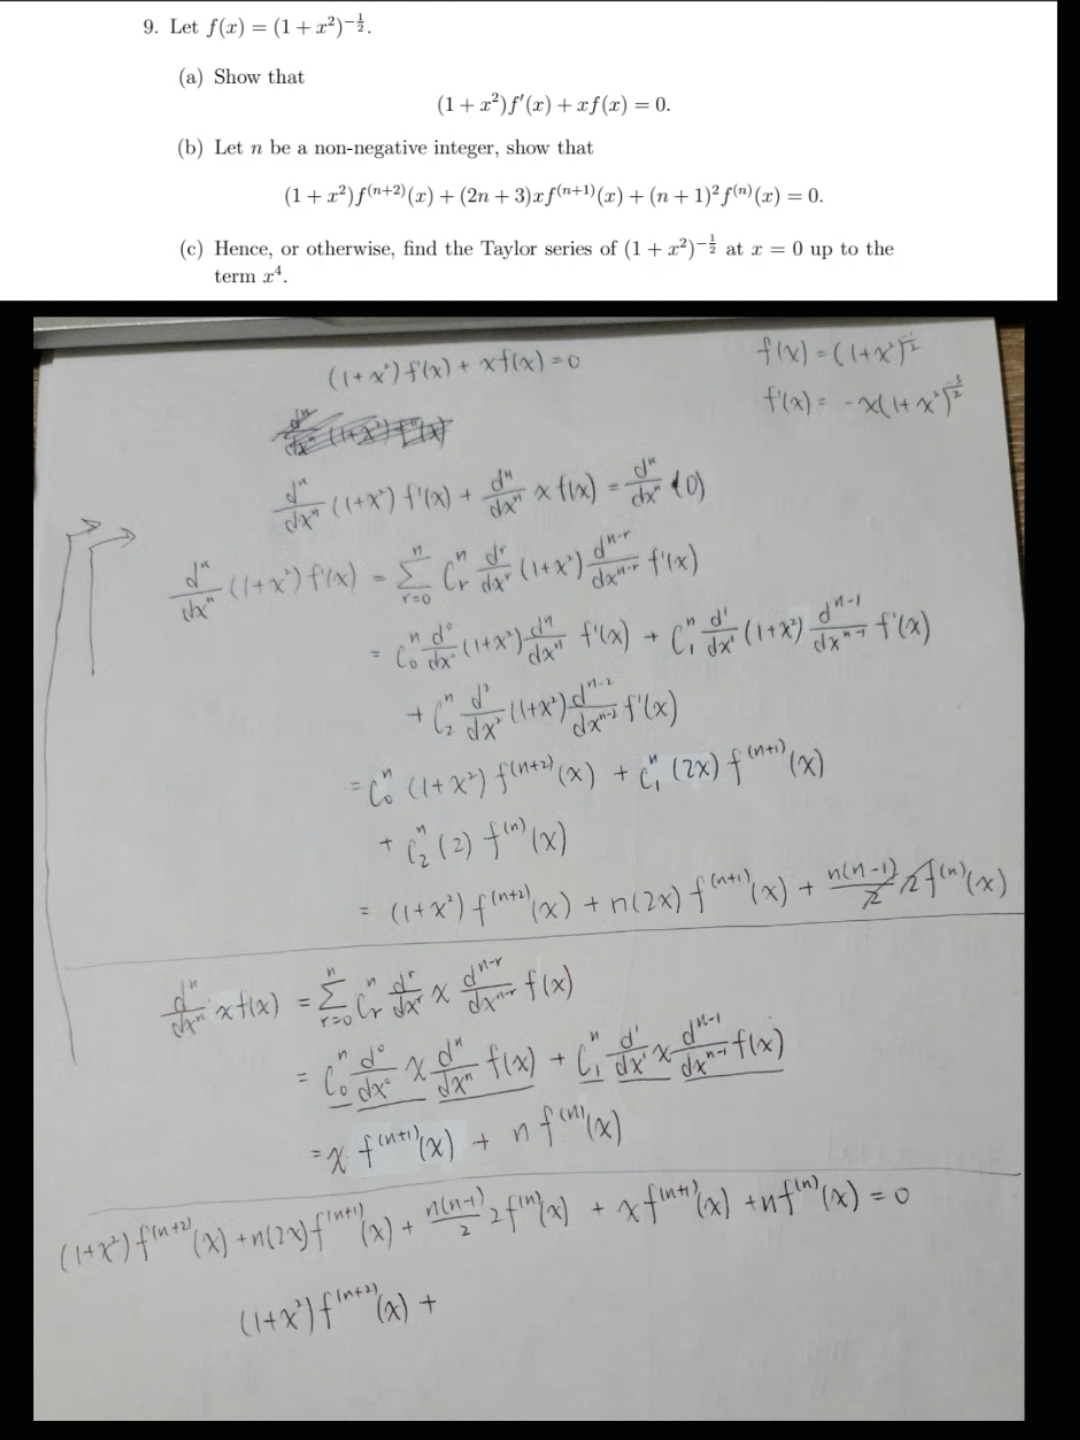 9. Let f(x) = (1 + x²)^{-1/2}.
(a) Show that
(1 + x²)f′(x) + xf(x) = 0.
(b) Let n be a non-negative integer, show that
(1 + x²)f^{(n+2)}(x) + (2n + 3)xf^{(n+1)}(x) + (n + 1)²f^{(n)}(x) = 0.
(c) Hence, or otherwise, find the Taylor series of (1 + x²)^{-1/2} at x = 0 up to the
term x⁴.
(1+x²)f'(x) + xf(x) = 0
f(x) = (1+x²)^{-1/2}
f'(x) = -x(1+x²)^{-3/2}
d^n/dx^n (1+x²) f'(x) + d^n/dx^n x f(x) = d^n/dx^n (0)
d^n/dx^n (1+x²) f'(x) = Σ_{r=0}^{n} C_r^n d^r/dx^r (1+x²) d^{n-r}/dx^{n-r} f'(x)
= C_0^n d^0/dx^0 (1+x²) d^n/dx^n f'(x) + C_1^n d^1/dx^1 (1+x²) d^{n-1}/dx^{n-1} f'(x)
+ C_2^n d²/dx² (1+x²) d^{n-2}/dx^{n-2} f'(x)
= C_0^n (1+x²) f^{(n+2)}(x) + C_1^n (2x) f^{(n+1)}(x)
+ C_2^n (2) f^{(n)}(x)
= (1+x²) f^{(n+2)}(x) + n(2x) f^{(n+1)}(x) + n(n-1)/2 2f^{(n)}(x)
d^n/dx^n x f(x) = Σ_{r=0}^{n} C_r^n d^r/dx^r x d^{n-r}/dx^{n-r} f(x)
= C_0^n d^0/dx^0 x d^n/dx^n f(x) + C_1^n d^1/dx^1 x d^{n-1}/dx^{n-1} f(x)
= x f^{(n+1)}(x) + n f^{(n)}(x)
(1+x²) f^{(n+2)}(x) + n(2x) f^{(n+1)}(x) + n(n-1)/2 2f^{(n)}(x) + x f^{(n+1)}(x) + n f^{(n)}(x) = 0
(1+x²) f^{(n+2)}(x) +